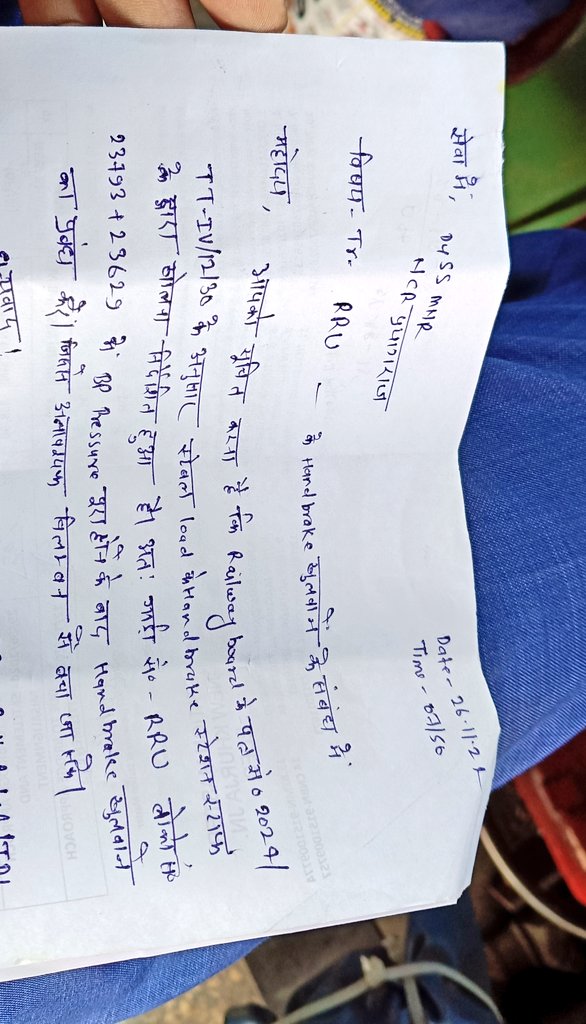 सेवा में,
Dy SS MNR
NCR प्रयागराज
Date- 26.11.24
Time- 07/50
विषय- Tr- RRU — के Hand brake खुलवाने के संबंध में
महोदय,
आपको सूचित करना है कि Railway board के पत्र सं० 2024/
TT-IV/12/30 के अनुसार स्टेबल load के Hand brake स्टेशन स्टाफ
के द्वारा खोलना निर्देशित हुआ है। अतः गाड़ी सं०- RRU लोको सं०
23793 + 23629 में BP Pressure पूरा होने के बाद Hand brake खुलवाने
का प्रबंध करें। जिससे अनावश्यक विलम्बन से बचा जा सके।
धन्यवाद!